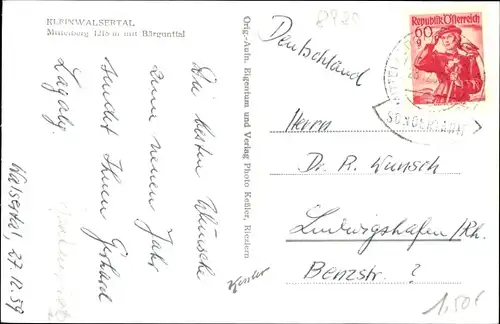 KLEINWALSERTAL
Mittelberg 1218 m mit Bärgunttal
Die besten Wünsche
zum neuen Jahr
sendet Ihnen Gerhard
Walsertal, 27.12.59
Orig.-Aufn. Eigentum und Verlag Photo Keßler, Riezlern
Kessler
Deutschland
Republik Österreich
60
g
Herrn
Dr. R. Wunsch
Ludwigshafen/Rh.
Benzstr. ?
1,50€